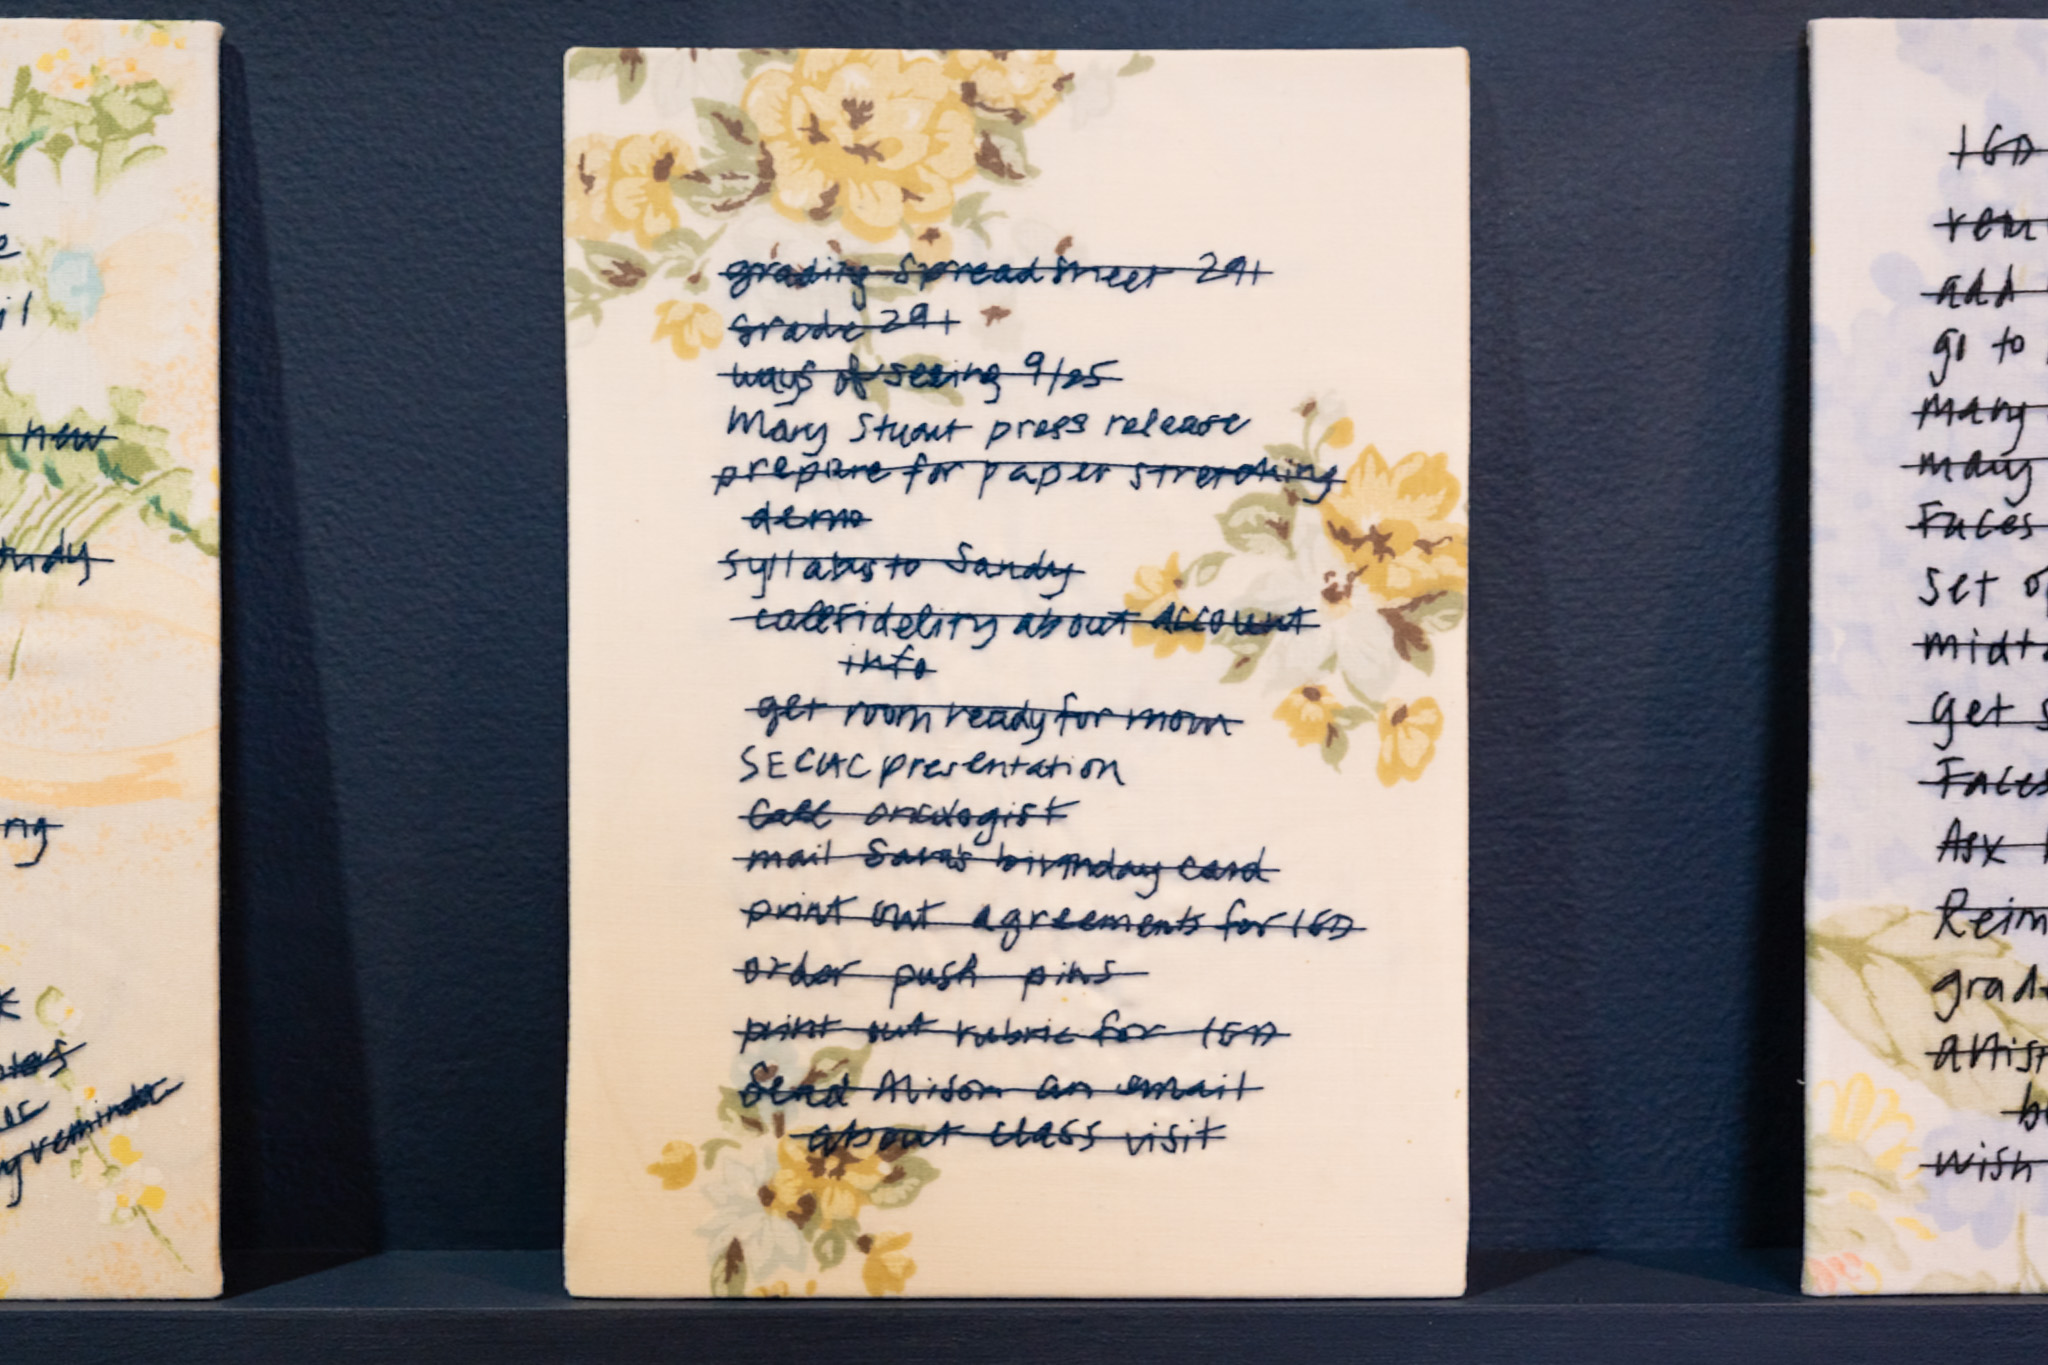 new
grading spreadsheet 291
grade 291
ways of seeing 9/25
Mary Stuart press release
prepare for paper stretching
demo
syllabus to Sandy
call Fidelity about account
info
get room ready for mom
SECAC presentation
call oncologist
mail Sara's birthday card
print out agreements for IGD
order push pins
print out rubric for IGD
Send Alison an email
about class visit
IGD
add
go to
many
many
Faces
set
get
Faces
Ask
wish